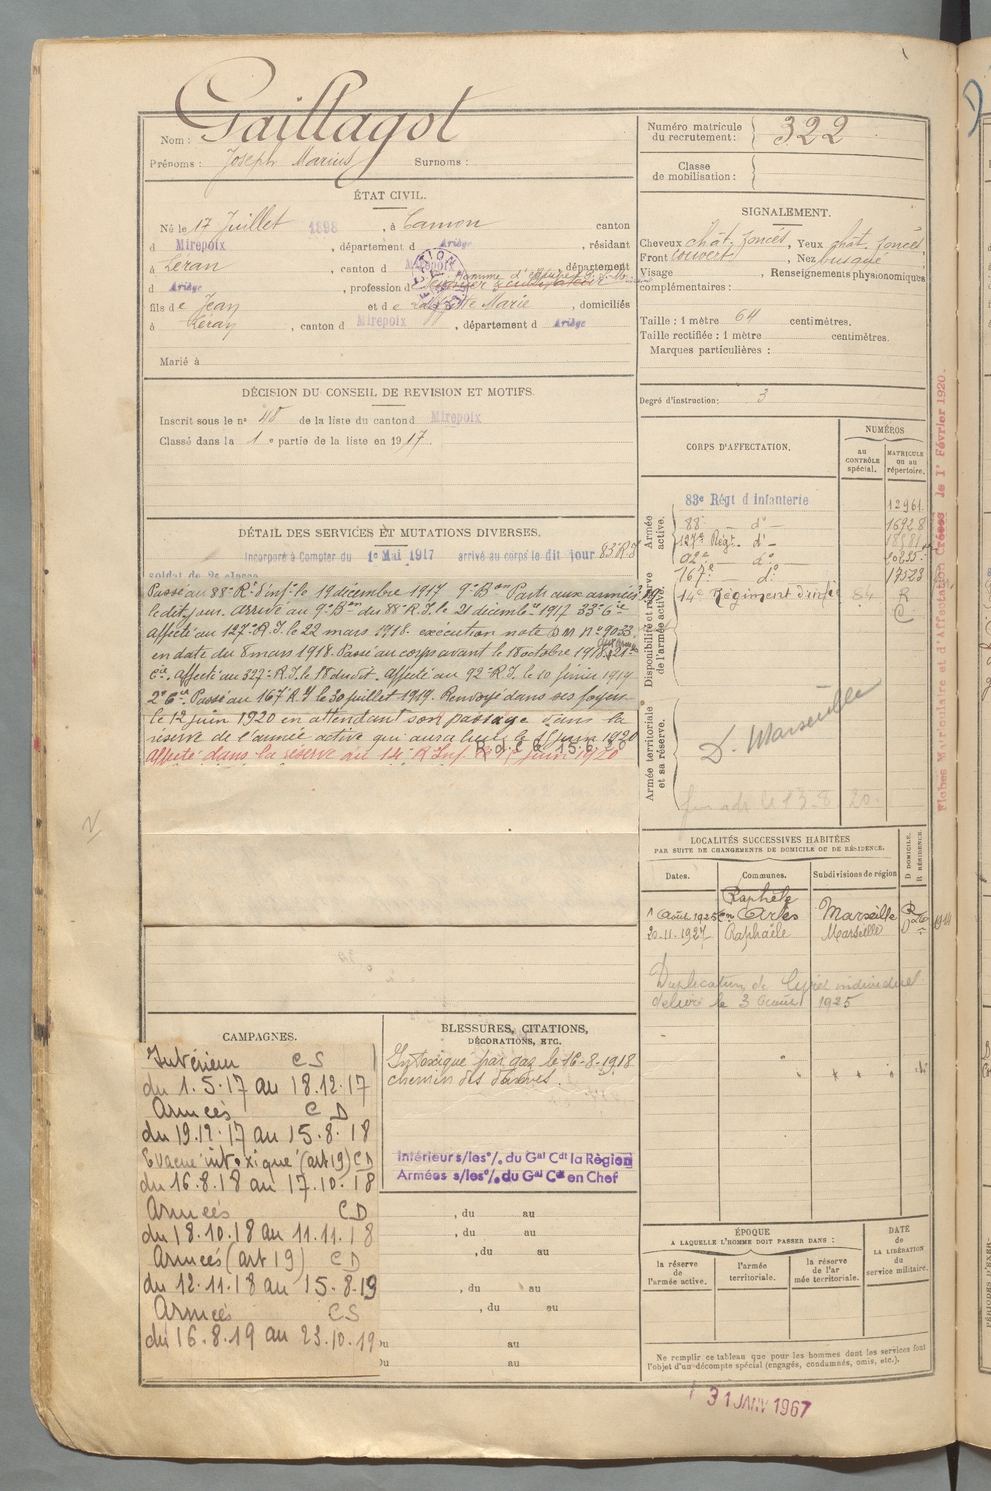 Nom : Gaillagot
Prénoms : Joseph Marius Surnoms :
Numéro matricule du recrutement : 322
Classe de mobilisation :
ÉTAT CIVIL.
Né le 17 Juillet 1898, à Camon canton
d Mirepoix, département d Ariège, résidant
à Léran, canton d Mirepoix, département
d Ariège, profession d
fils de Jean et de Marie, domiciliés
à Léran, canton d Mirepoix, département d Ariège
Marié à
SIGNALEMENT.
Cheveux chât. foncés, Yeux chât. foncés
Front couvert, Nez busqué
Visage , Renseignements physionomiques
complémentaires :
Taille : 1 mètre 64 centimètres.
Taille rectifiée : 1 mètre centimètres.
Marques particulières :
Degré d'instruction : 3
DÉCISION DU CONSEIL DE REVISION ET MOTIFS.
Inscrit sous le n° 48 de la liste du canton d Mirepoix
Classé dans la 1e partie de la liste en 1917.
DÉTAIL DES SERVICES ET MUTATIONS DIVERSES.
Incorporé à Compter du 1er Mai 1917 arrivé au corps le dit jour 83e R.I
soldat de 2e classe
Passé au 88e Rt d'infie le 19 décembre 1917 9e Bon Parti aux armées
le dit jour. arrivé au 9e Bon du 88e R.I. le 21 décembre 1917 33e Cie
Affecté au 127e R.I. le 22 mars 1918. exécution note D.M. No 9033
en date du 8 mars 1918. Passé au corps avant le 18 octobre 1918
Cie. Affecté au 327e R.I. le 18 du dit. Affecté au 92e R.I. le 10 février 1919
2e Cie. Passé au 167e R.I le 30 juillet 1919. Renvoyé dans ses foyers
le 12 juin 1920 en attendant son passage dans la
réserve de l'armée active qui aura lieu le 15 juin 1920
Affecté dans la réserve au 14e R Inf.
CORPS D'AFFECTATION.
NUMÉROS
au CONTRÔLE spécial.
MATRICULE ou au répertoire.
Armée active.
83e Régt d'infanterie 12961
88e d° 16928
127e Régt. d°
92e d°
167e d° 17523
Disponibilité et réserve de l'armée active.
14e Régiment d'infie 84 R
C
Armée territoriale et sa réserve.
D. Marseille
Fiches Matriculaire et d'Affectation Créées le 1er Février 1920.
LOCALITÉS SUCCESSIVES HABITÉES
PAR SUITE DE CHANGEMENTS DE DOMICILE OU DE RÉSIDENCE.
Dates. Communes. Subdivisions de région D DOMICILE. R RÉSIDENCE.
Raphèle
1 Août 1925 en Arles Marseille R
20-11-1927 Raphaële Marseille D
Duplication de livret individuel
délivré le 3 Août 1925
CAMPAGNES.
Intérieur CS
du 1.5.17 au 18.12.17
Armées CD
du 19.12.17 au 15.8.18
Evacué intoxiqué (art 19) CD
du 16.8.18 au 17.10.18
Armées CD
du 18.10.18 au 11.11.18
Armées (art 19) CD
du 12.11.18 au 15.8.19
Armées CS
du 16.8.19 au 23.10.19
BLESSURES, CITATIONS,
DÉCORATIONS, ETC.
Intoxiqué par gaz le 16-8-1918
chemin des dames.
Intérieur s/les °/. du Gal Cdt la Région
Armées s/les °/. du Gal Ct en Chef
, du au
, du au
, du au
, du au
, du au
Du au
Du au
ÉPOQUE
A LAQUELLE L'HOMME DOIT PASSER DANS :
la réserve de l'armée active.
l'armée territoriale.
la réserve de l'armée territoriale.
DATE DE LA LIBÉRATION du service militaire.
Ne remplir ce tableau que pour les hommes dont les services font
l'objet d'un décompte spécial (engagés, condamnés, omis, etc.).
31 JANV 1967